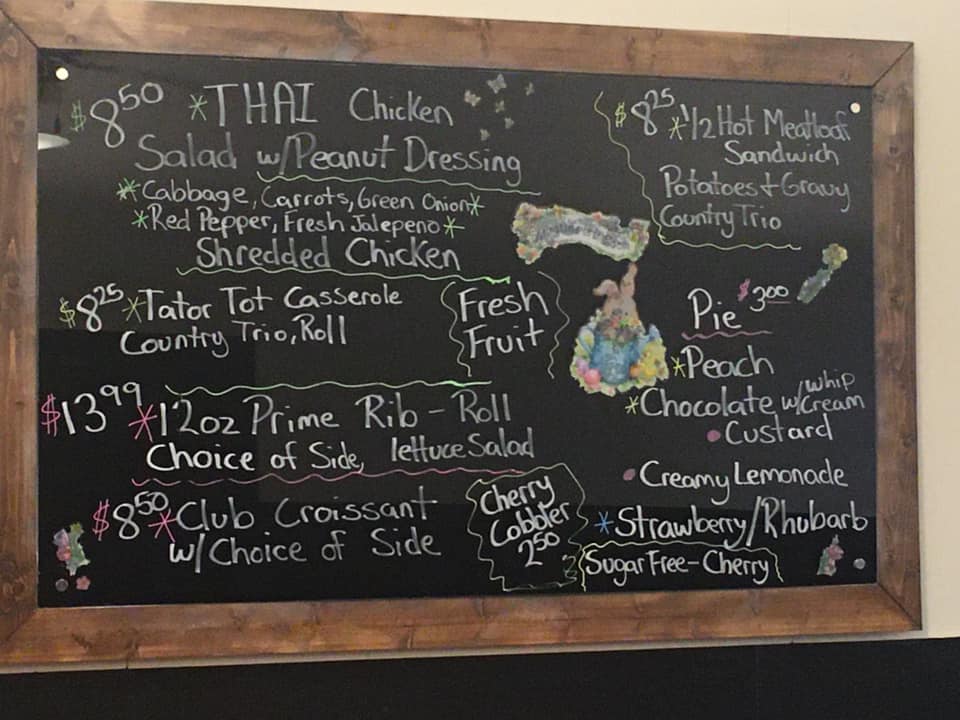 $8.50 *THAI Chicken
Salad w/Peanut Dressing
*Cabbage, Carrots, Green Onion*
*Red Pepper, Fresh Jalepeno*
Shredded Chicken
$8.25 *Tator Tot Casserole
Country Trio, Roll
Fresh
Fruit
$13.99 *12oz Prime Rib - Roll
Choice of Side, lettuce Salad
$8.50 *Club Croissant
w/Choice of Side
Cherry
Cobbler
2.50
$8.25 *1/2 Hot Meatloaf
Sandwich
Potatoes + Gravy
Country Trio
Pie $3.00
*Peach
*Chocolate w/whip
Cream
Custard
Creamy Lemonade
*Strawberry/Rhubarb
Sugar Free - Cherry